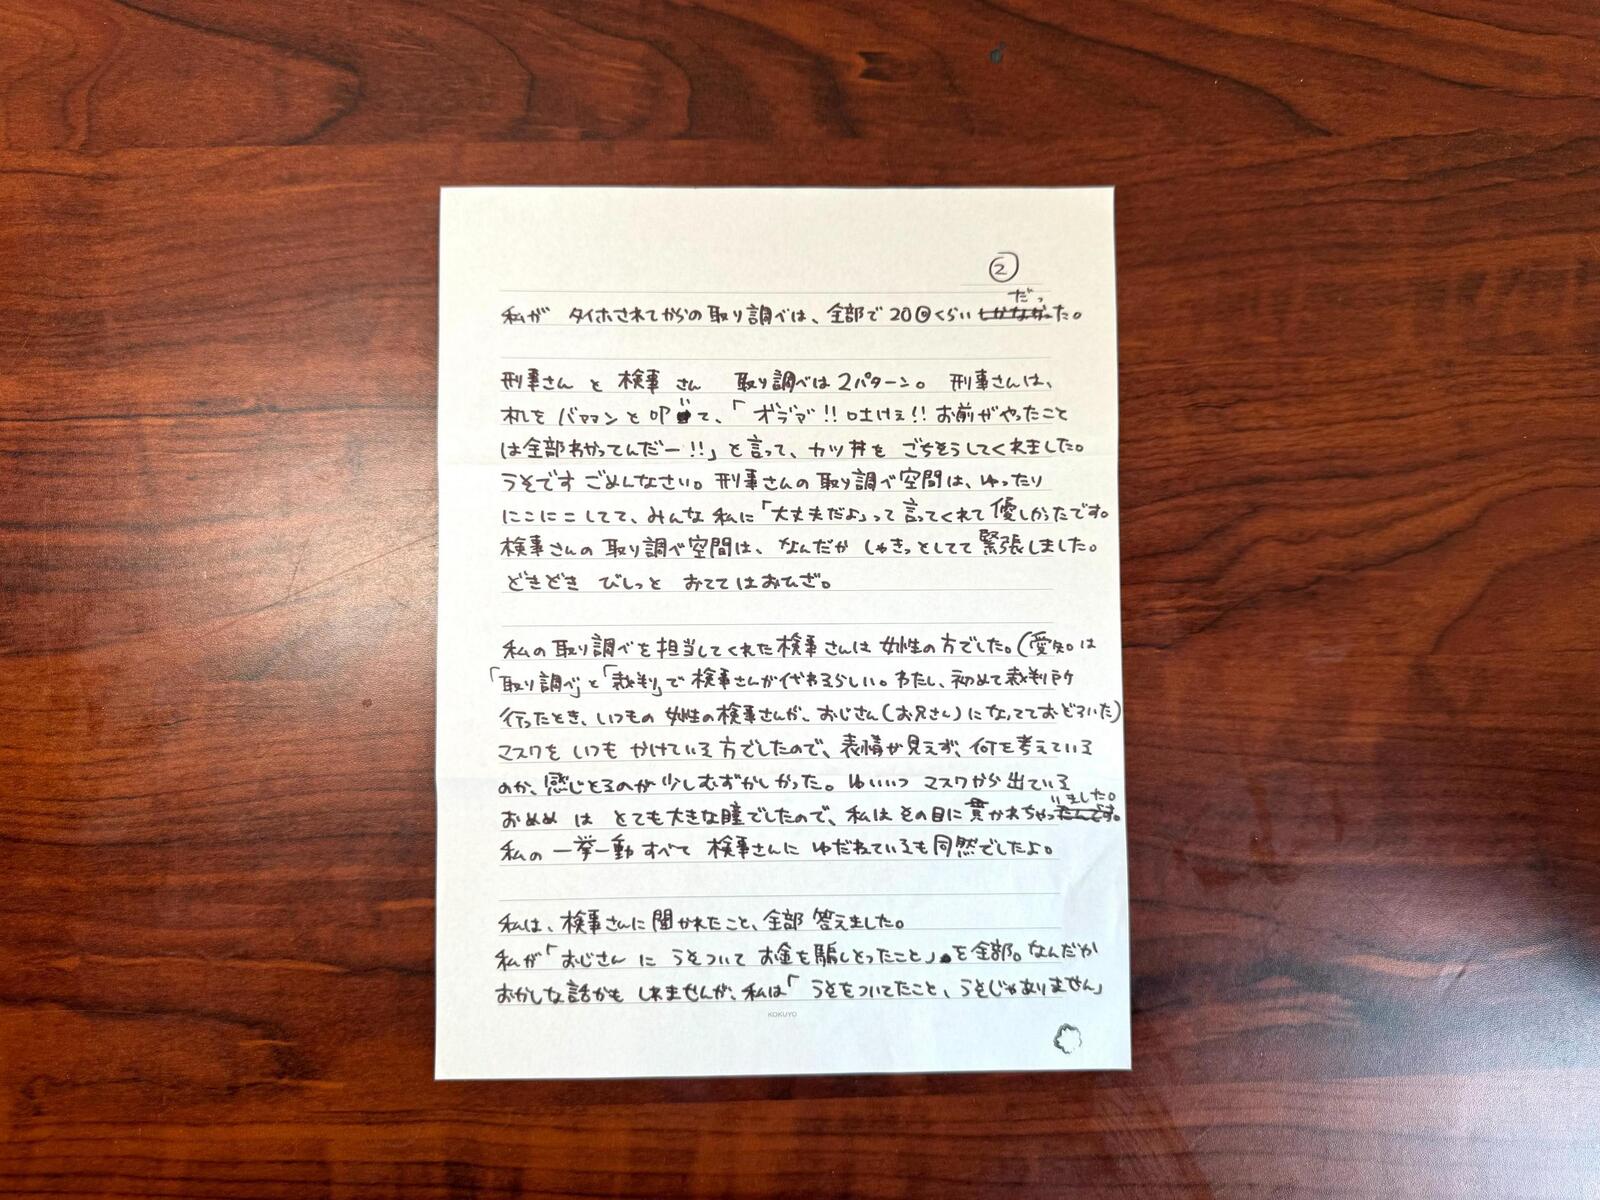 ②
私が タイホされてからの取り調べは、全部で20回くらいしかなかっだった。
刑事さん と 検事 さん 取り調べは2パターン。 刑事さんは、
机を バァァンと叩いて、「 オラァ!!吐けぇ!!お前がやったこと
は全部わかってんだー!!」と言って、カツ丼を ごちそうしてくれました。
うそです ごめんなさい。刑事さんの 取り調べ空間は、ゆったり
にこにこしてて、みんな 私に「大丈夫だよ」って 言ってくれて 優しかったです。
検事さんの 取り調べ空間は、なんだか しゃきっとしてて 緊張しました。
どきどき びしっと おててはおひざ。
私の 取り調べを担当してくれた検事さんは 女性の方でした。(愛知は
「取り調べ」と「裁判」で 検事さんが代わるらしい。わたし、初めて裁判所
行ったとき、いつもの 女性の検事さんが、おじさん(お兄さん)になってておどろいた)
マスクを いつも かけている 方でしたので、表情が見えず、何を考えている
のか、感じとるのが少しむずかしかった。ゆいいつ マスクから 出ている
おめめ は とても大きな瞳でしたので、私は その目に 貫かれちゃったんです。いました。
私の 一挙一動 すべて 検事さんに ゆだねているも同然でしたよ。
私は、検事さんに聞かれたこと、全部 答えました。
私が「おじさん に うそついて お金を騙しとったこと」を全部。なんだか
おかしな話かも しれませんが、私は「 うそをついてたこと、うそじゃありません」
KOKUYO